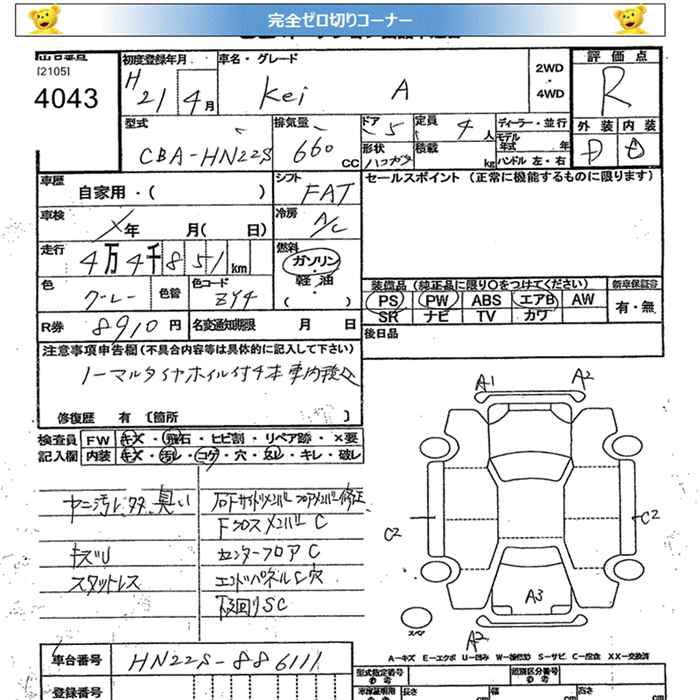 完全ゼロ切りコーナー
[2105]
4043
初度登録年月
H
21 4月
車名・グレード
Kei A
2WD
・
4WD
評価点
R
外装 内装
D D
型式
CBA-HN22S
排気量
660 CC
ドア 5
定員 4 人
形状
積載 kg
ディーラー・並行
モデル
年式 年
ハンドル 左・右
車歴
自家用・( )
シフト
FAT
セールスポイント (正常に機能するものに限ります)
車検
X年 月( 日)
冷房
A/C
走行
4万4千851km
燃料
ガソリン・
軽油・
( )
色
グレー
色替
色コード
ZY4
装備品 (純正品に限り○をつけてください)
新車保証書
PS PW ABS エアB AW
有・無
SR ナビ TV カワ
R券 8910円
名変通知期限 月 日
後日品
注意事項申告欄 (不具合内容等は具体的に記入して下さい)
ノーマルタイヤホイル付4本車内積込
修復歴 有 〔箇所 〕
検査員
記入欄
FW キズ・飛石・ヒビ割・リペア跡・×要
内装 キズ・汚れ・コゲ・穴・スレ・キレ・破レ
ヤニ汚レ、タタ、臭い
キズU
スタットレス
右Fサイドメンバー フロアメンバー修正
Fクロスメンバー C
センターフロア C
エンドパネルS穴
下回りSC
A1 A2
C2 C2
A3
スペア
A2
A-キズ E-エクボ U-凹み W-補修跡 S-サビ C-腐食 XX-交換済
車台番号 HN22S-886111
登録番号
型式指定番号
類別区分番号
長さ cm
幅 cm
高さ cm